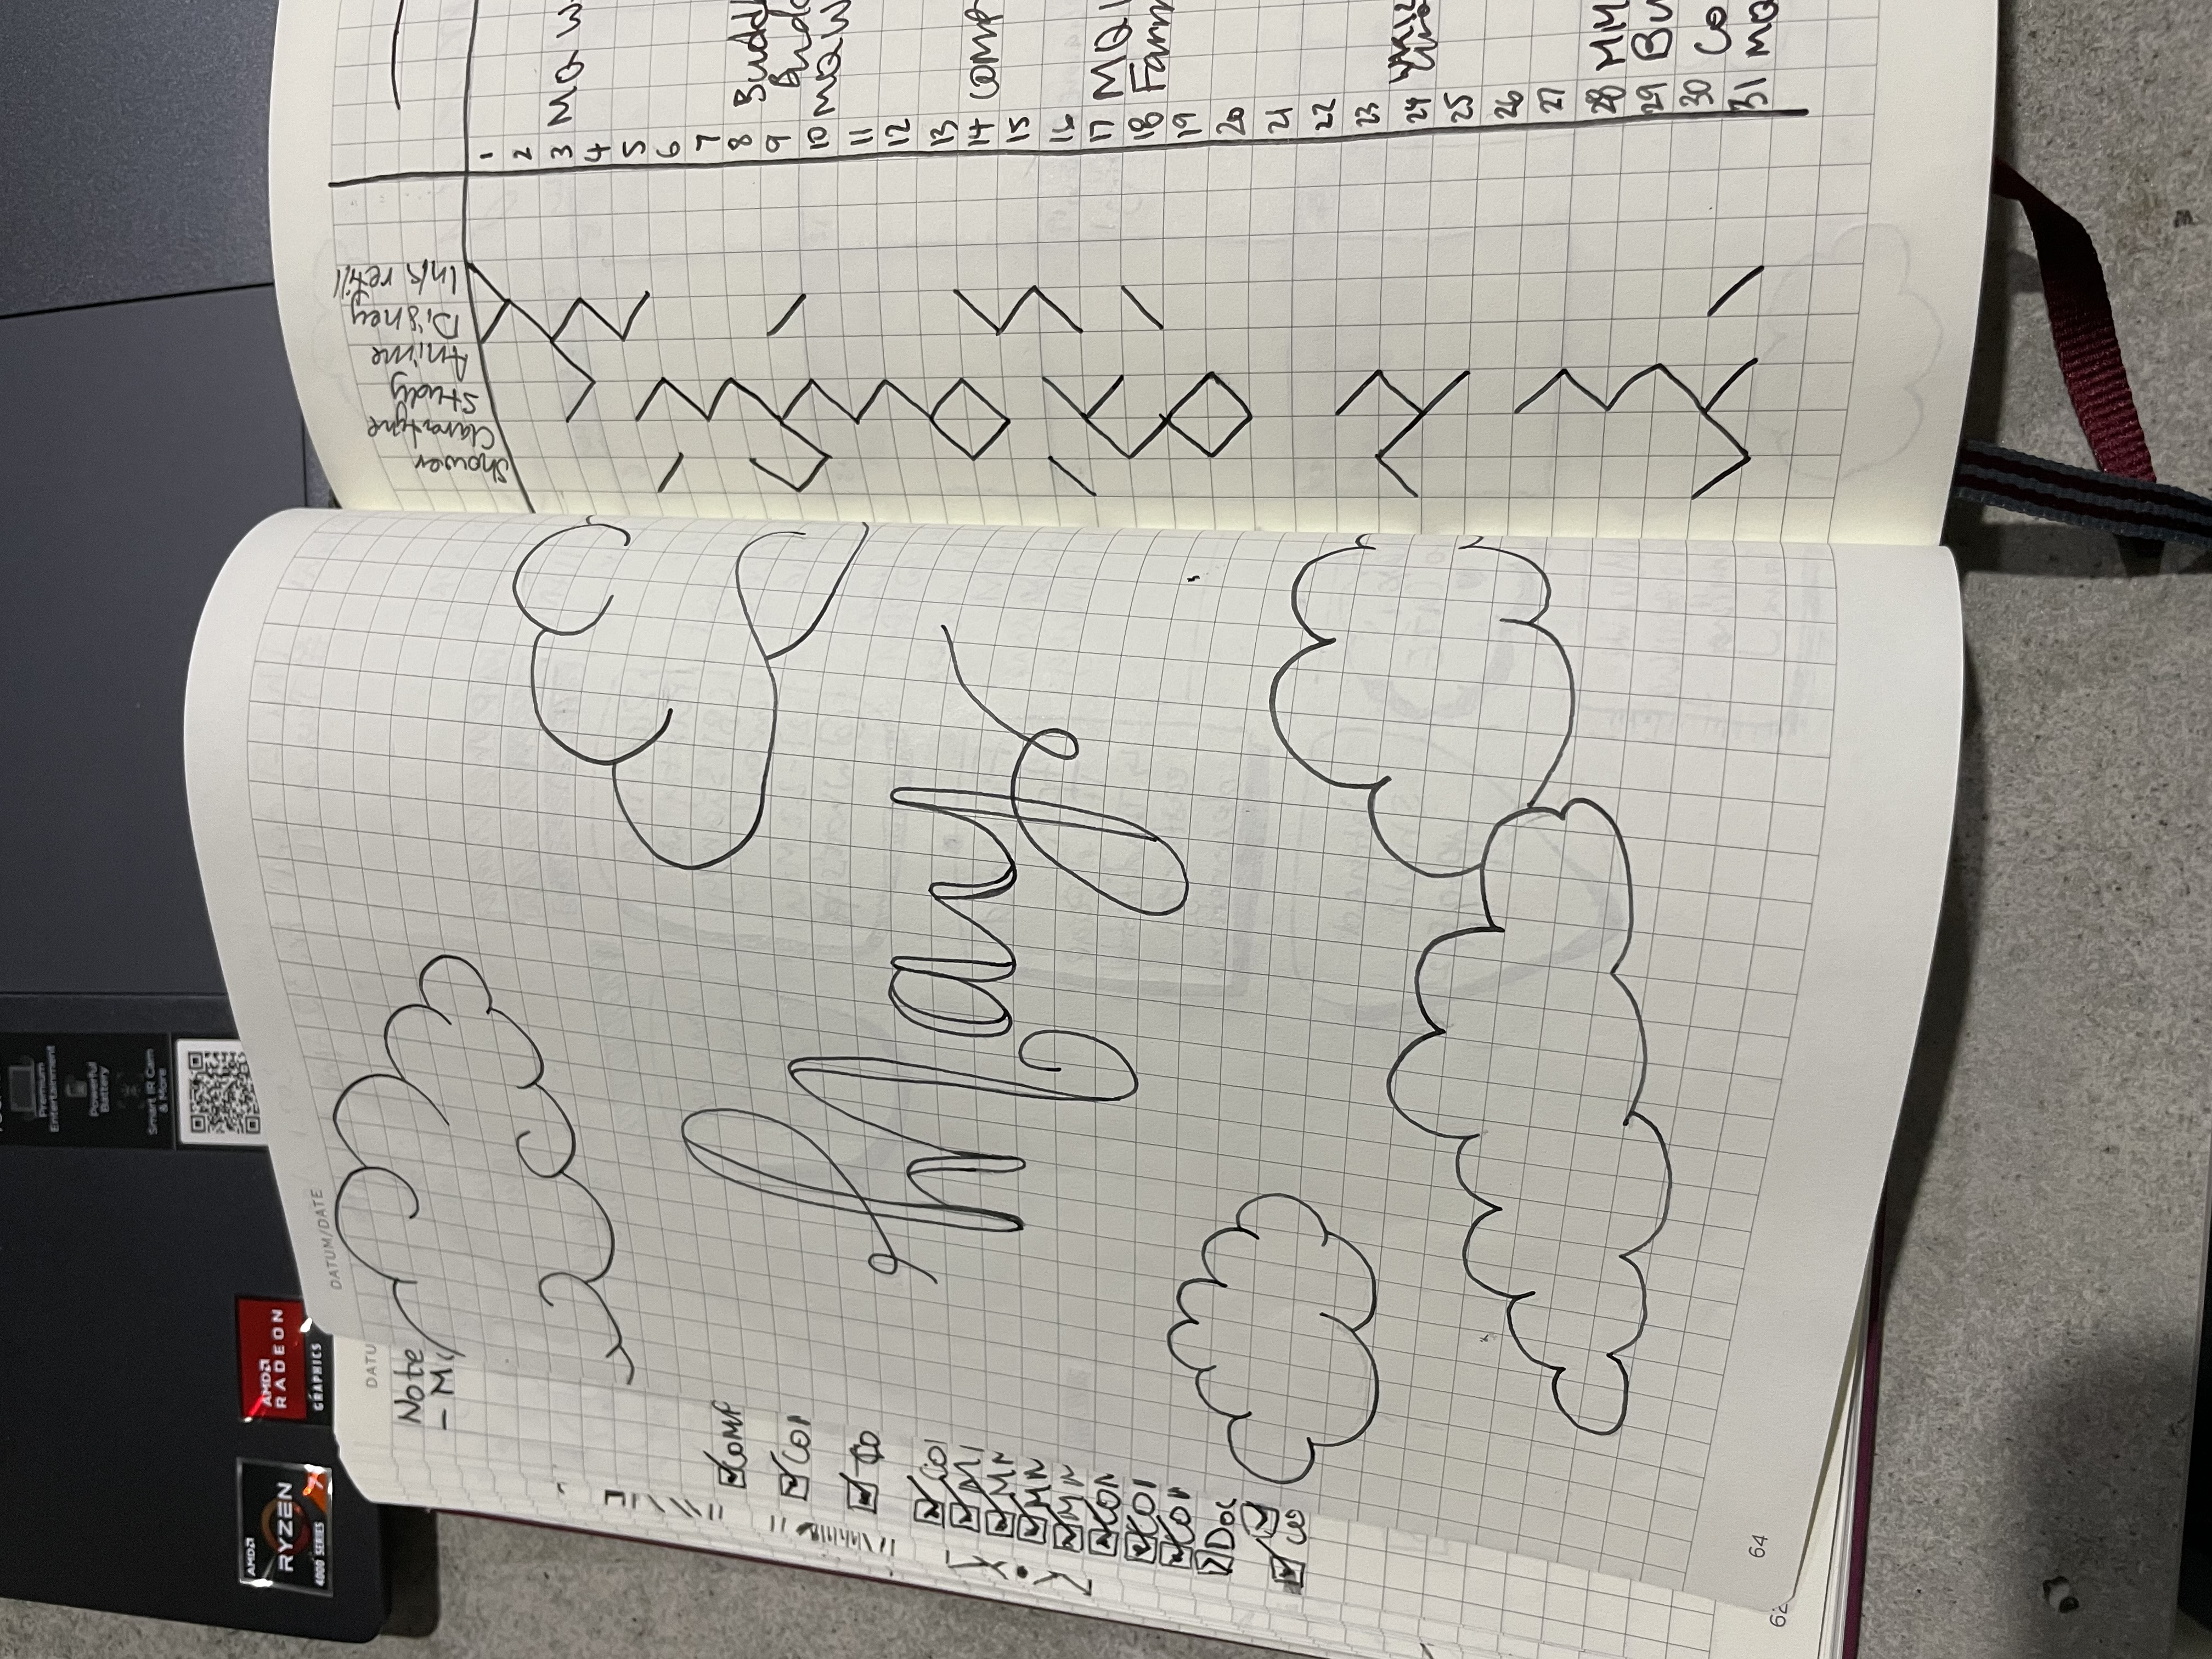 Premium
Entertainment
Powerful
Battery
Smart IR Cam
& More
AMD
RYZEN
4000 SERIES 7
AMD
RADEON
GRAPHICS
DATU
Note
- M
COMP
COM
CO
MN
MN
Doc
62
DATUM/DATE
May
64
Shower
Claratyne
Study
Anime
Disney
Ink refill
1
2
3 MQ W
4
5
6
7
8 Budd
9 Budd
10 MQ W
11
12
13
14 COMP
15
16
17 MQ
18 Farm
19
20
21
22
23
24
25
26
27
28 MM
29 Bu
30 Co
31 MQ